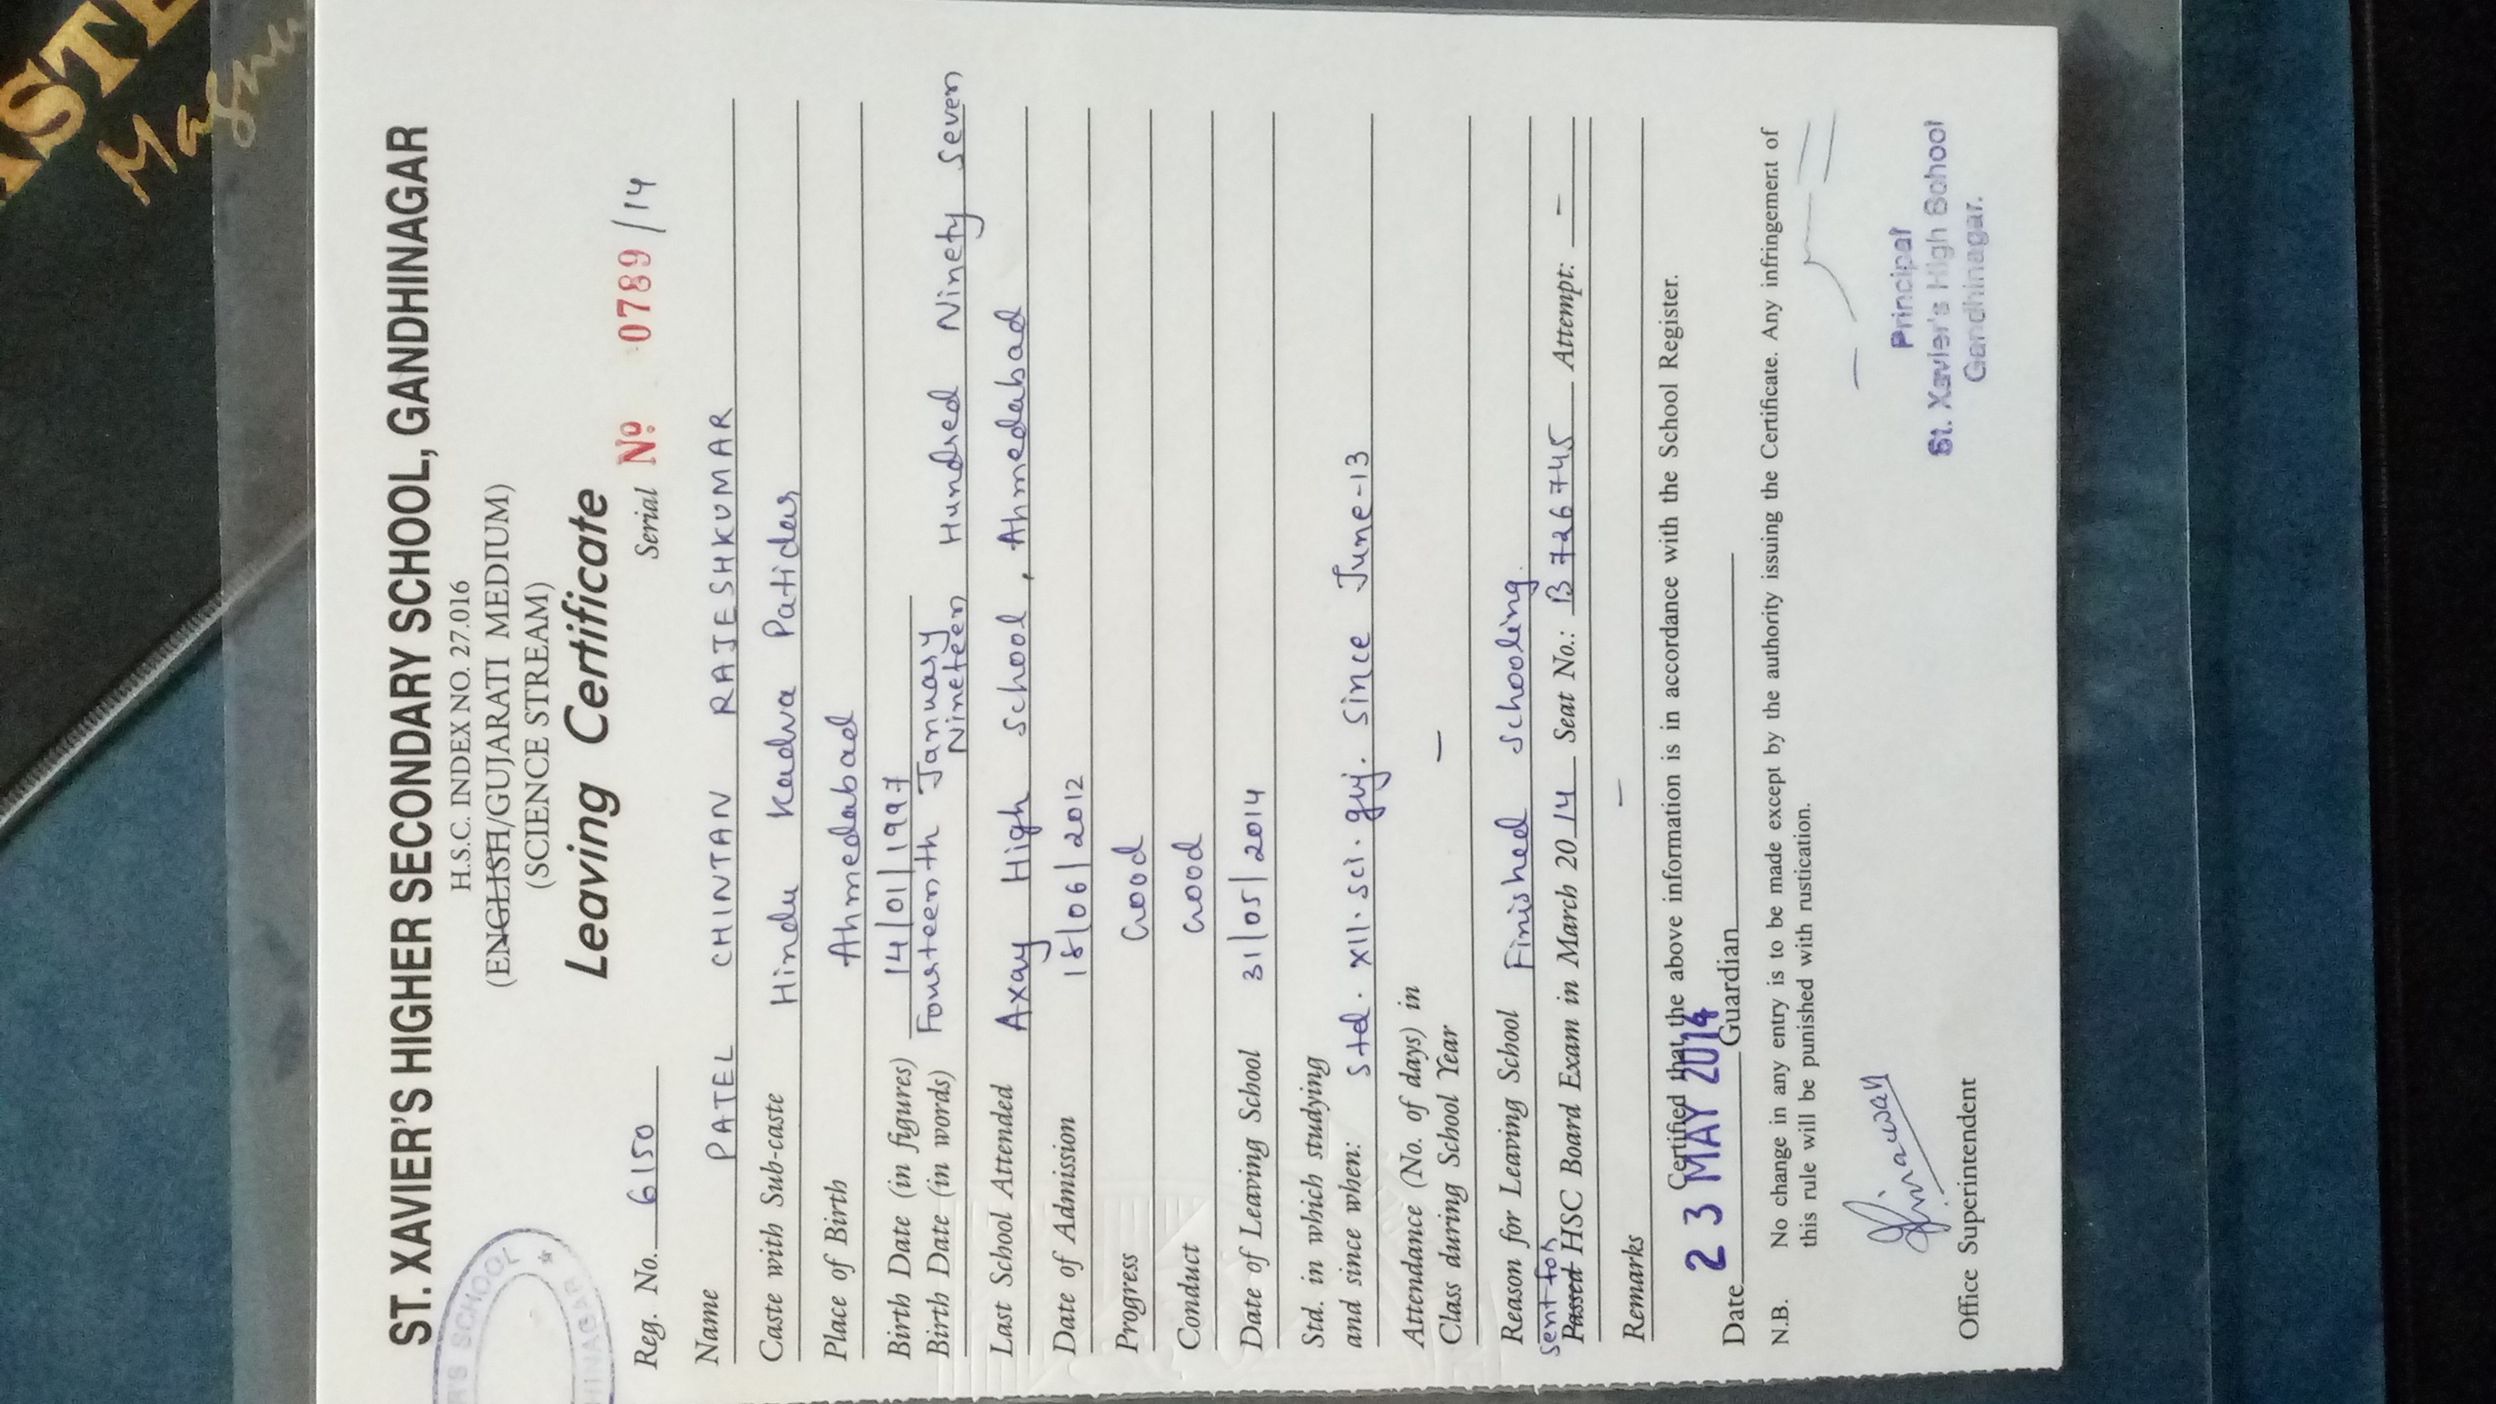 ST. XAVIER'S HIGHER SECONDARY SCHOOL, GANDHINAGAR
H.S.C. INDEX NO. 27.016
(ENGLISH/GUJARATI MEDIUM)
(SCIENCE STREAM)
Leaving Certificate
Reg. No. 6150 Serial No 0789/14
Name PATEL CHINTAN RAJESHKUMAR
Caste with Sub-caste Hindu Kadva Patidar
Place of Birth Ahmedabad
Birth Date (in figures) 14/01/1997
Birth Date (in words) Fourteenth January Nineteen Hundred Ninety Seven
Last School Attended Axay High School, Ahmedabad
Date of Admission 18/06/2012
Progress Good
Conduct Good
Date of Leaving School 31/05/2014
Std. in which studying
and since when: Std. XII. sci. guj. since June-13
Attendance (No. of days) in
Class during School Year –
Reason for Leaving School Finished schooling.
sent for
Passed HSC Board Exam in March 2014 Seat No.: B 726745 Attempt: –
Remarks –
Certified that the above information is in accordance with the School Register.
Date 23 MAY 2014 Guardian
N.B. No change in any entry is to be made except by the authority issuing the Certificate. Any infringement of
this rule will be punished with rustication.
Office Superintendent
Principal
St. Xavier's High School
Gandhinagar.